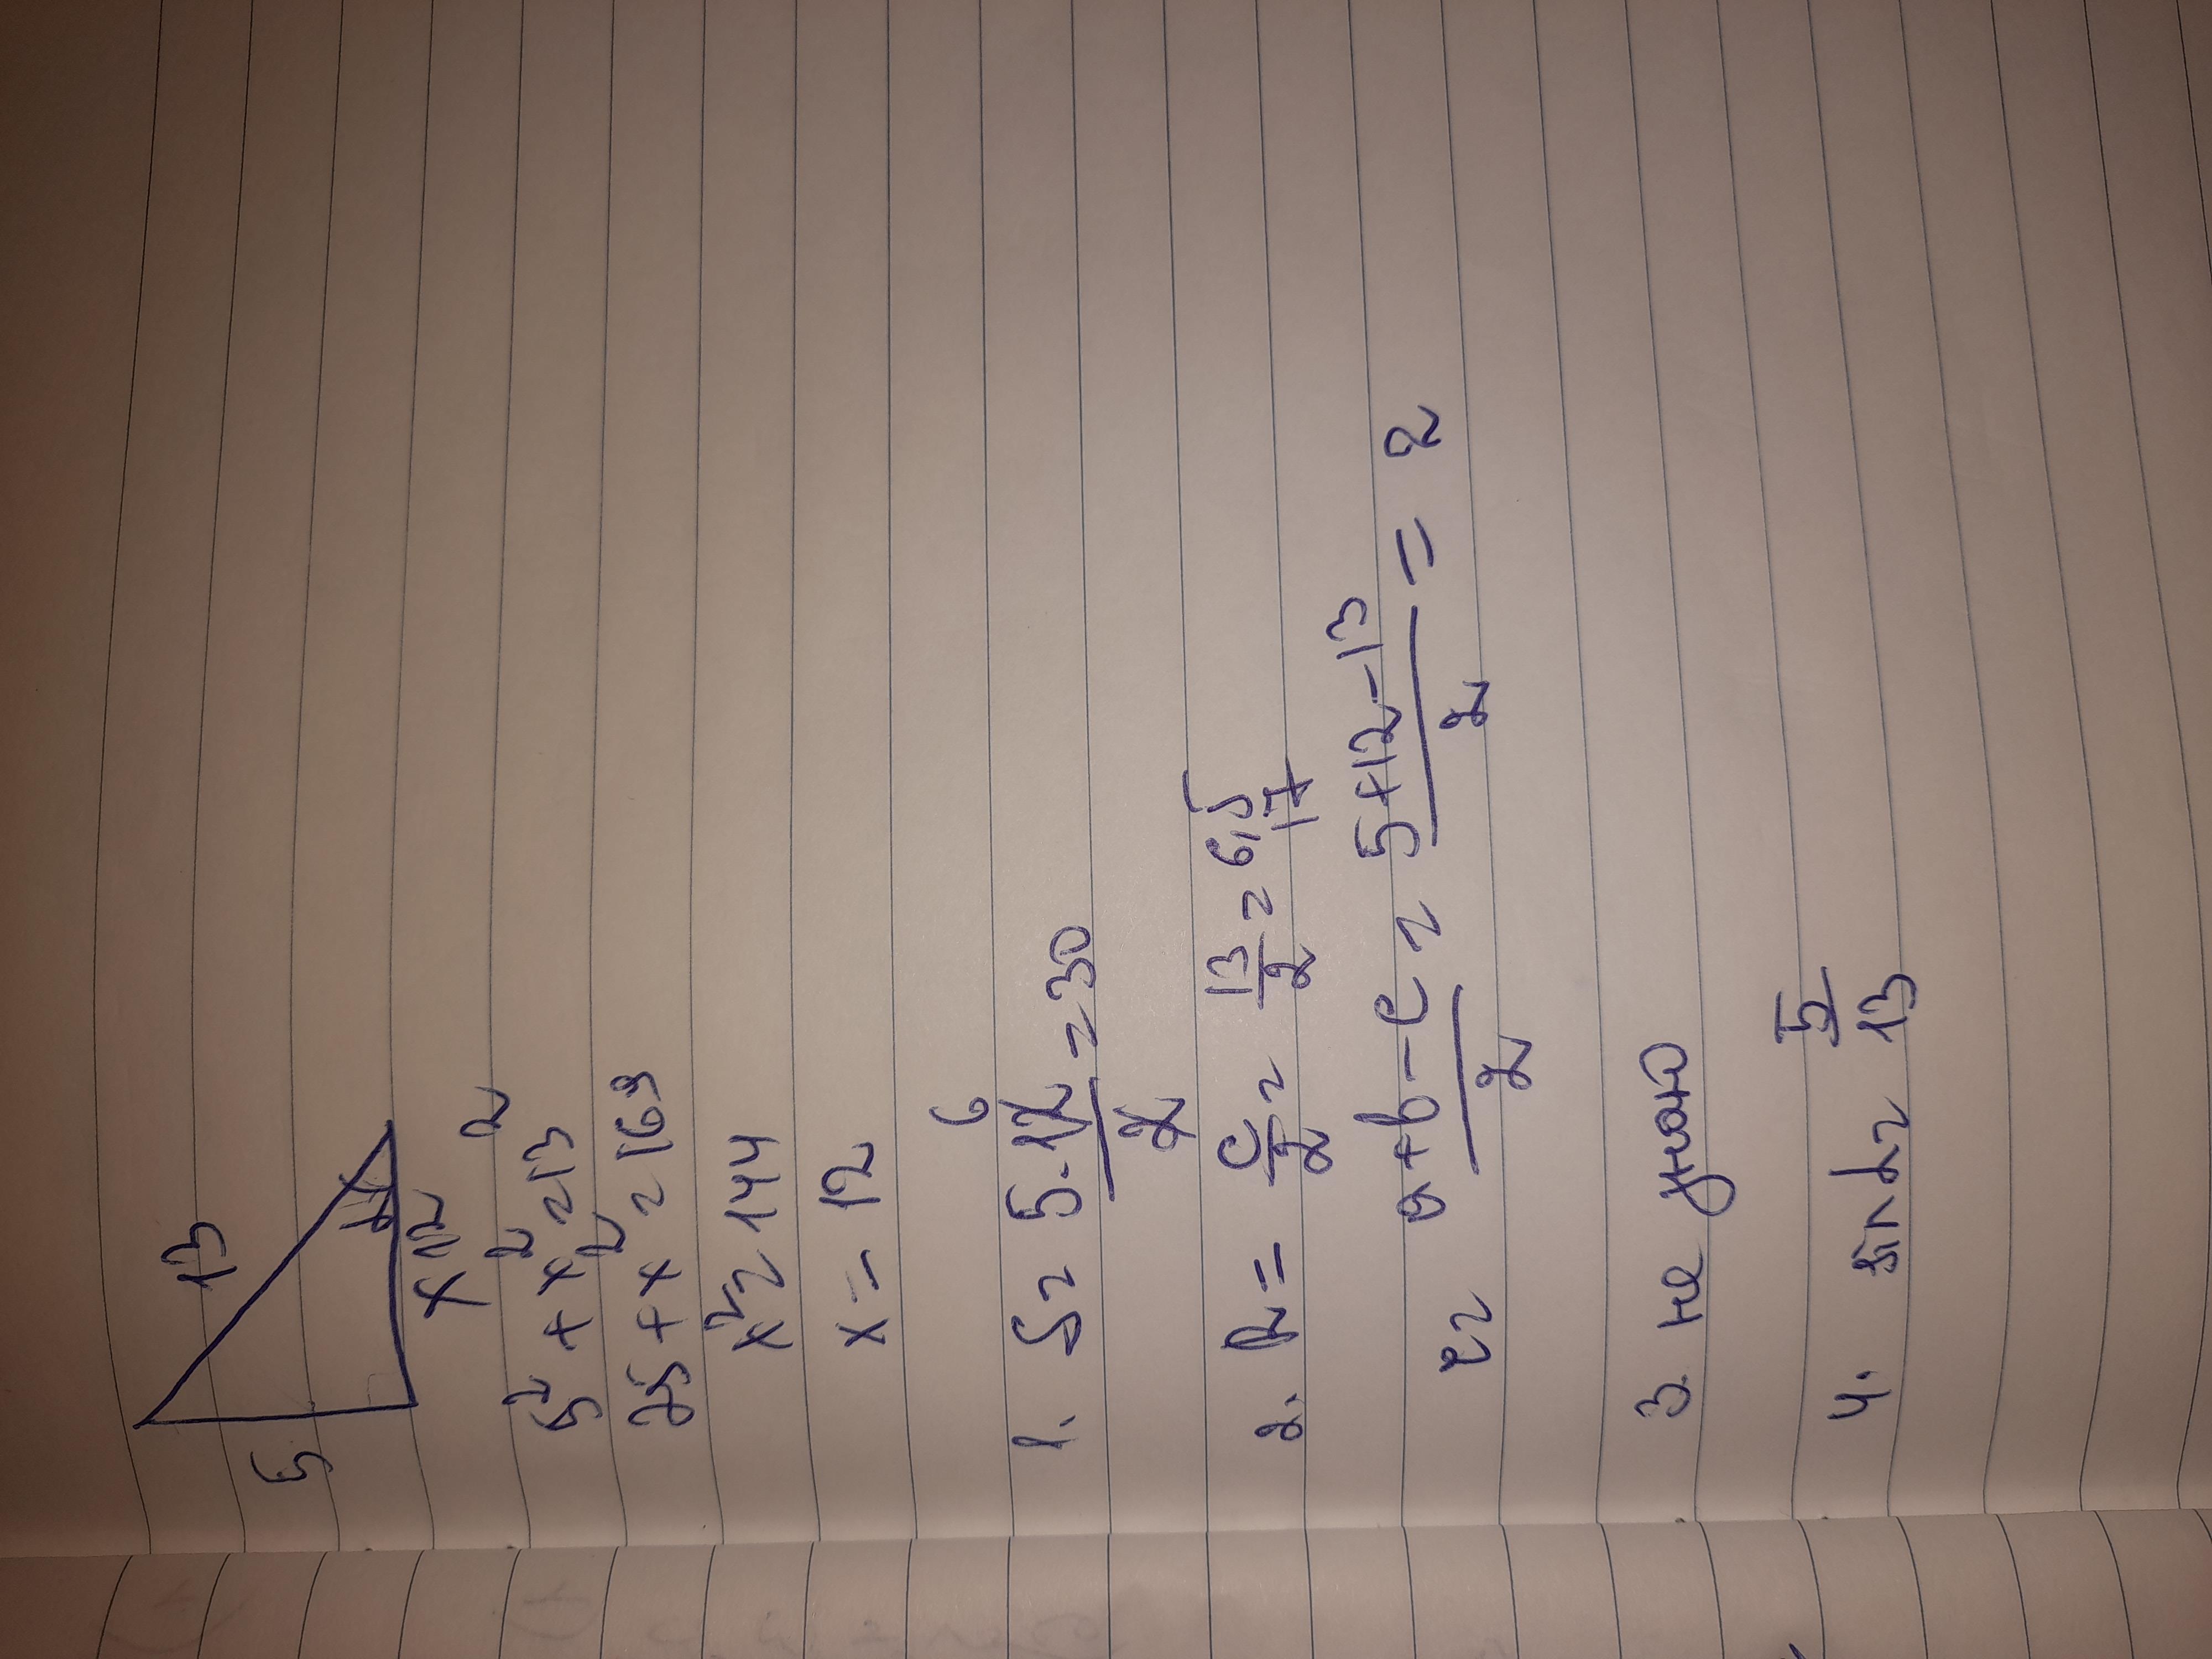 13
5
α
x 12
5² + x² = 13²
25 + x² = 169
x² = 144
x = 12
6
1. S = 5 · 12 / 2 = 30
2. R = c/2 = 13/2 = 6,5
17
r = a+b-c / 2 = 5+12-13 / 2 = 2
3. не знаю
4. sinα = 5/13